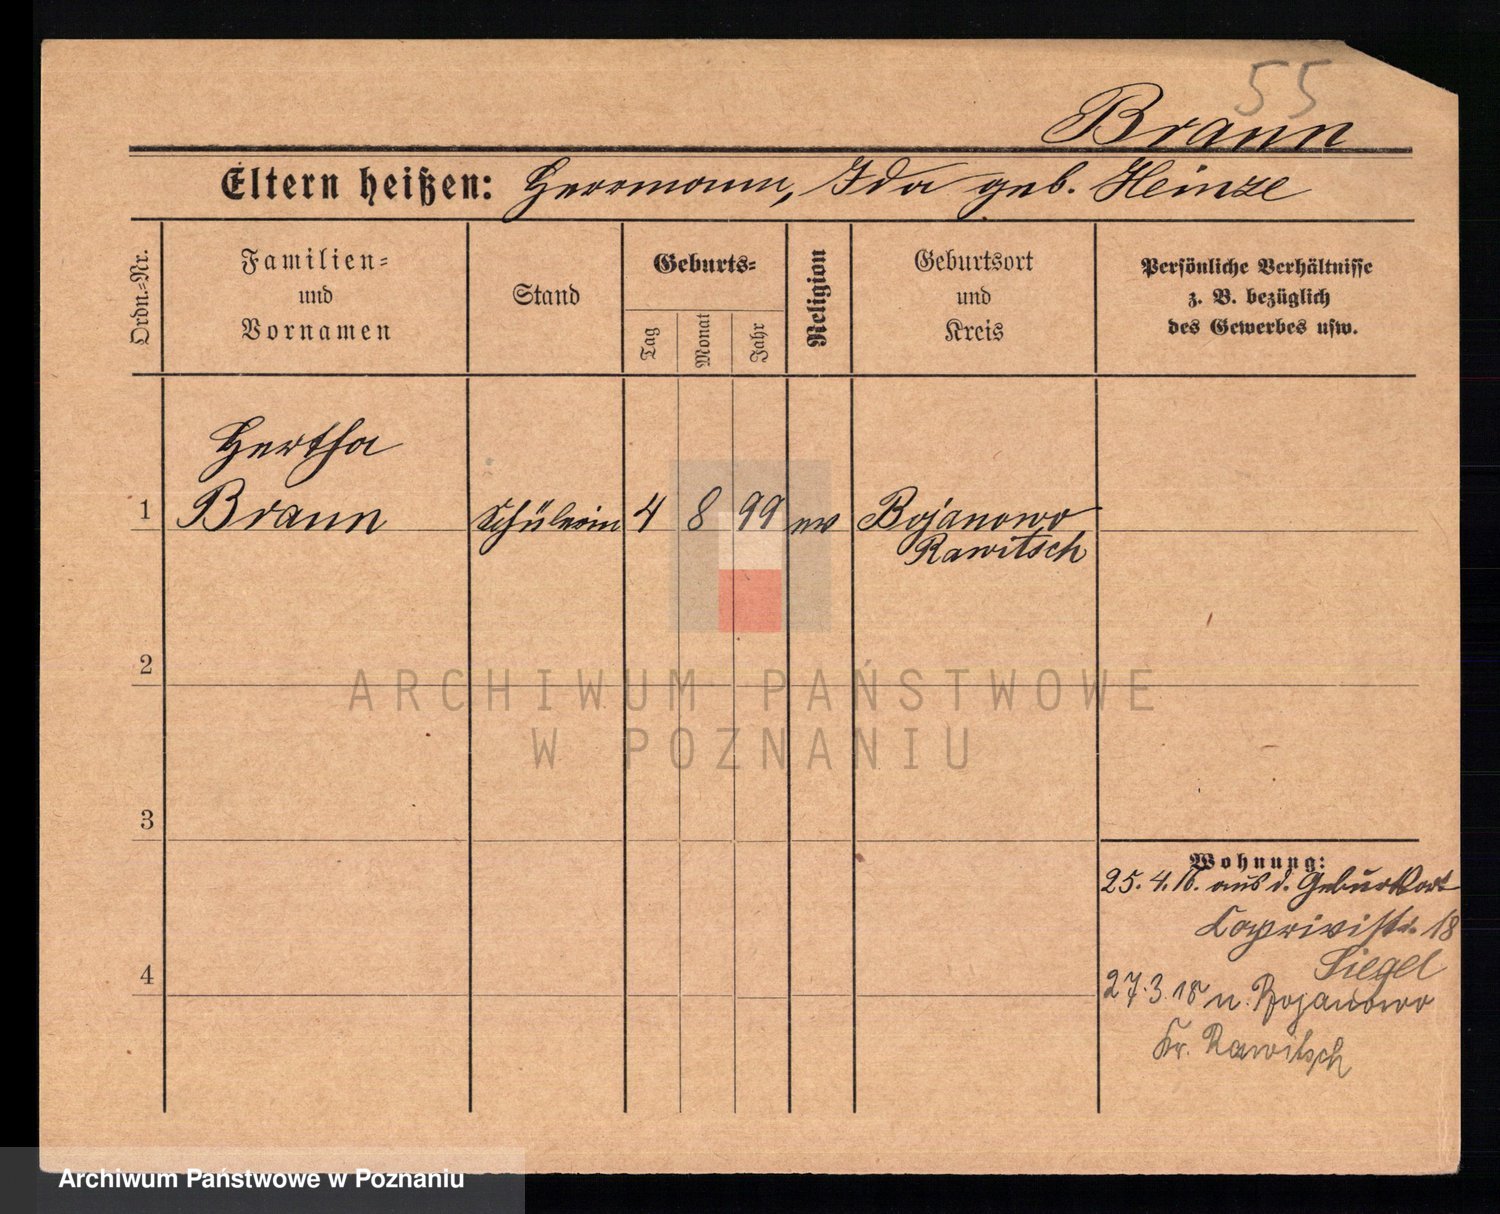 55
Braun
Eltern heißen: Herrmann, Ida geb. Heinze
Ordn.-Nr.
Familien-
und
Vornamen
Stand
Geburts-
Tag
Monat
Jahr
Religion
Geburtsort
und
Kreis
Persönliche Verhältnisse
z. B. bezüglich
des Gewerbes usw.
Hertha
1 Braun Schülerin 4 8 99 ev Bojanowo
Rawitsch
2
ARCHIWUM PAŃSTWOWE
W POZNANIU
3
Wohnung:
25. 4. 16. aus d. Geburtsort
Caprivistr. 18
Siegel
4
27. 3. 18 n. Bojanowo
Kr. Rawitsch
Archiwum Państwowe w Poznaniu